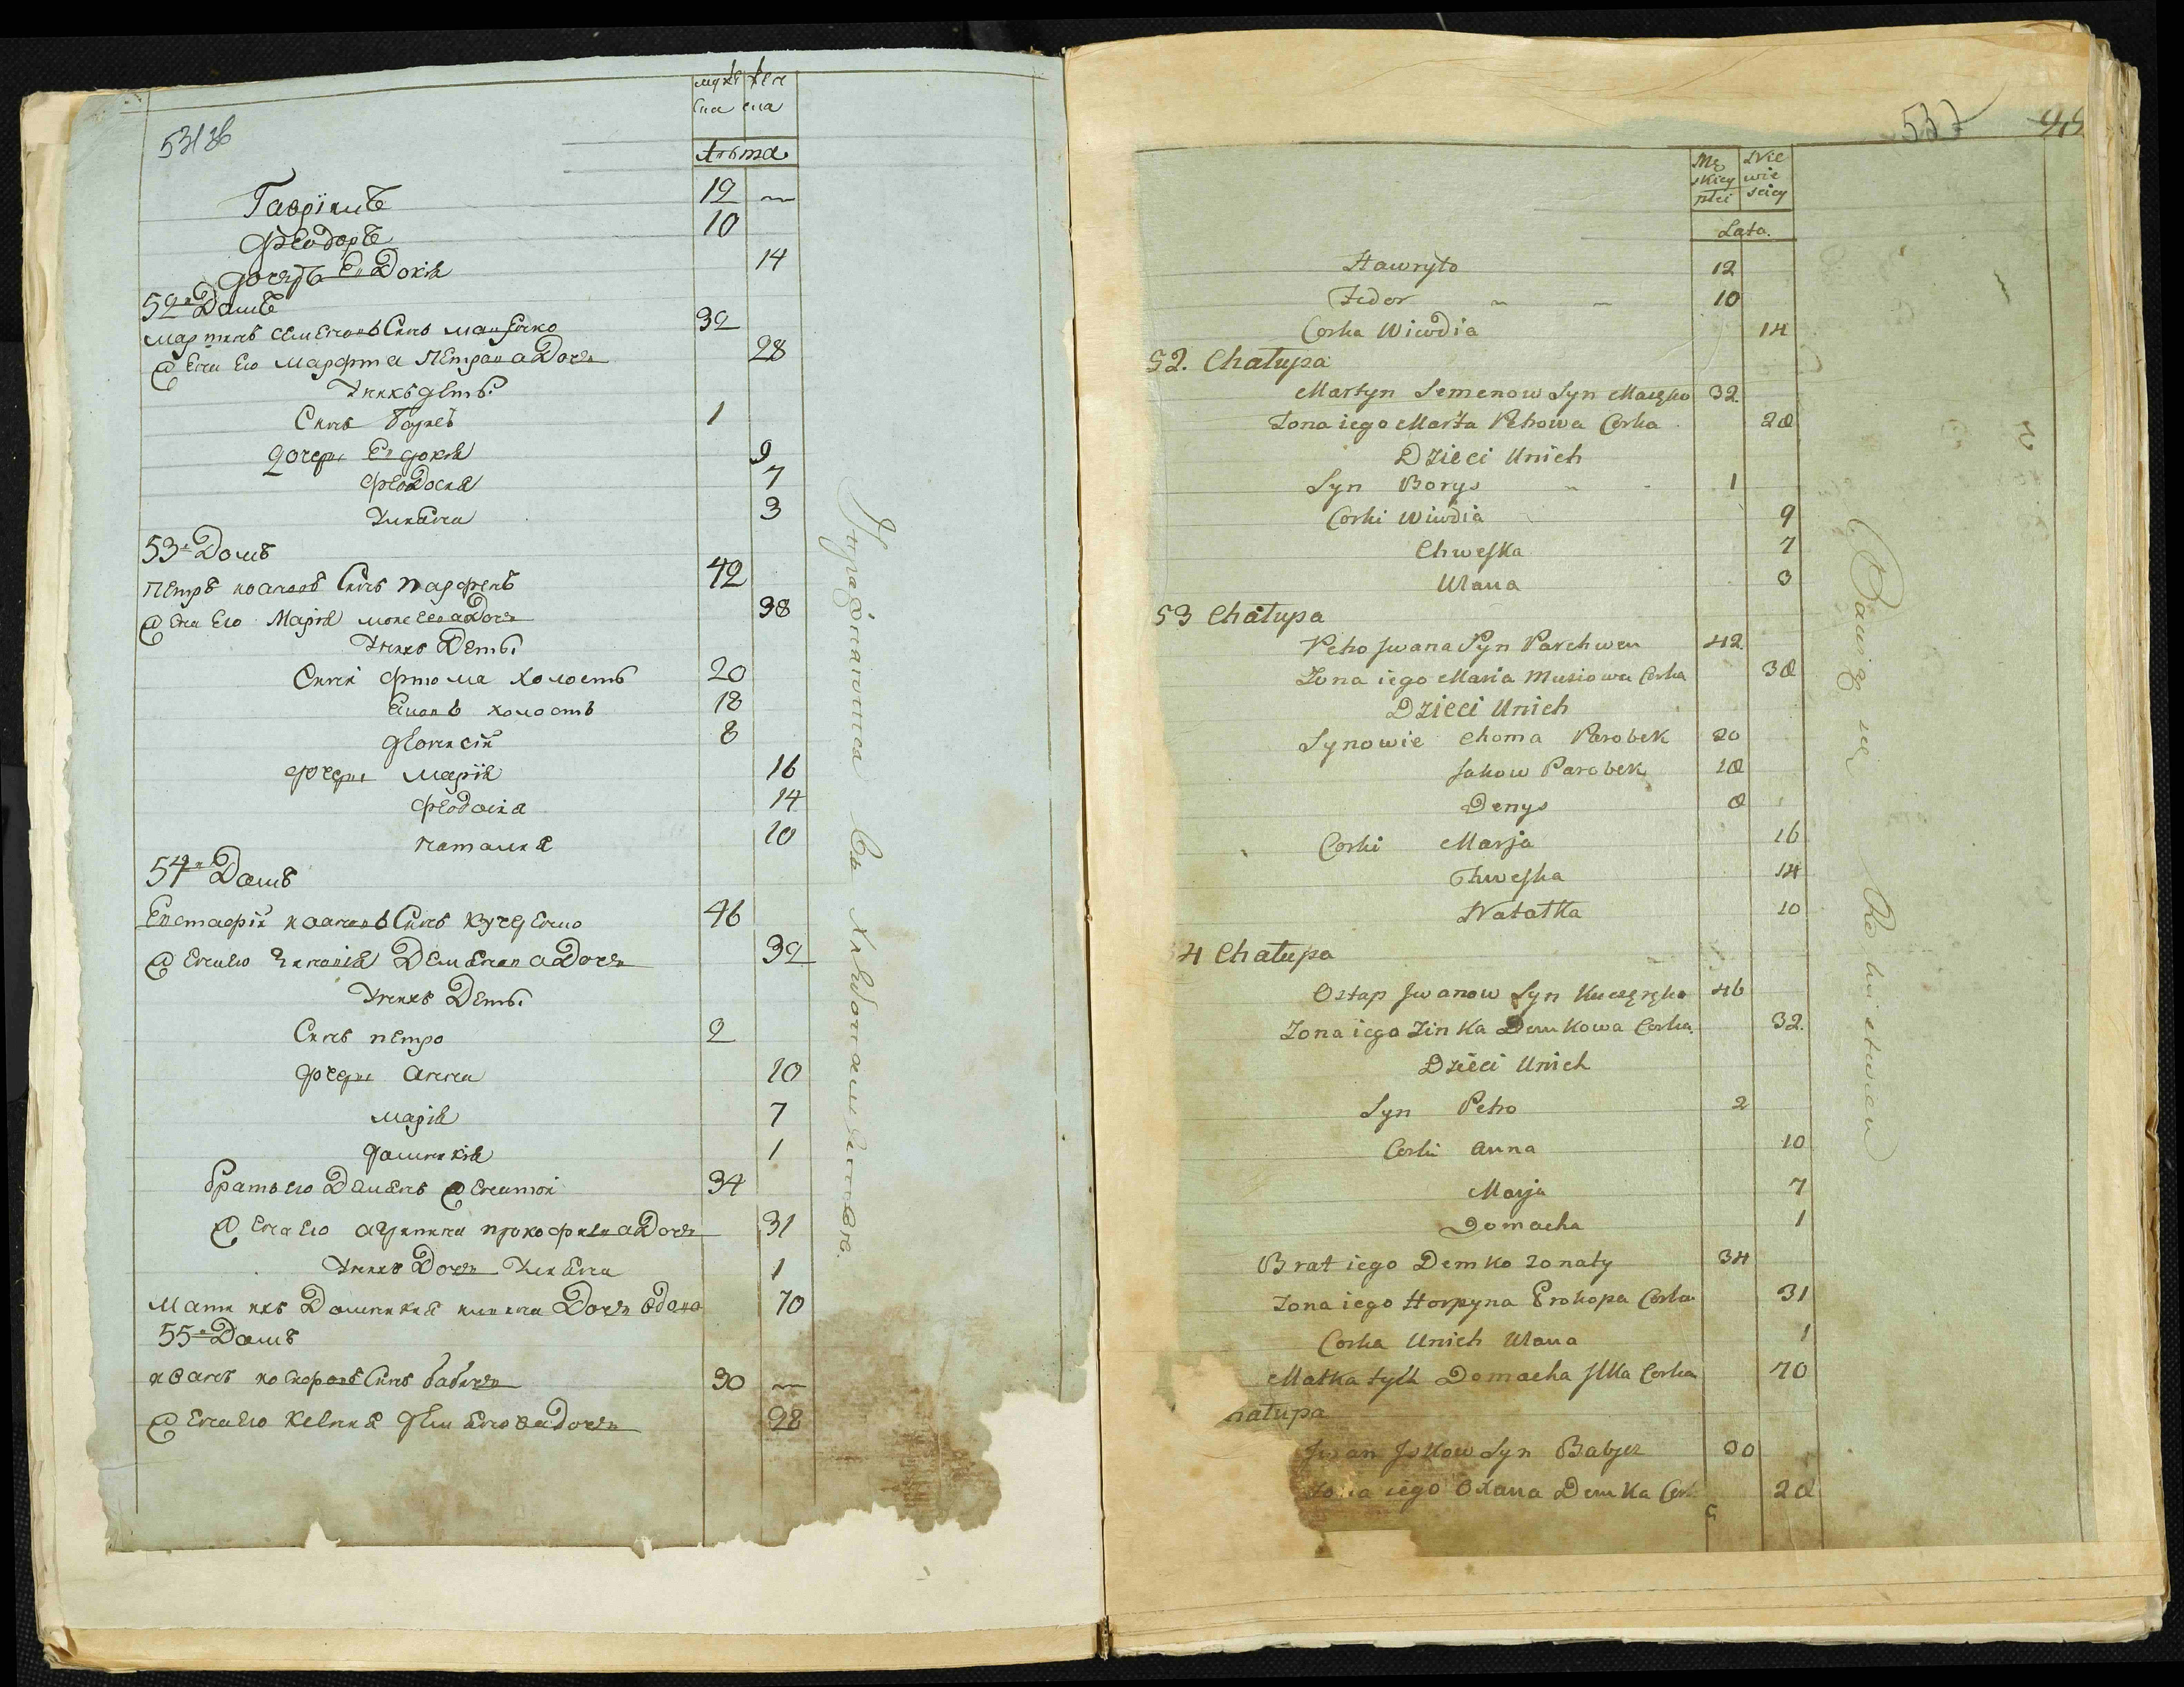 муже жен
ска ска
лѣта
Гаврiилъ 12
Феодоръ 10
дочерь Евдокiя 14
52й Домъ
Мартинъ Семеновъ Синъ 32
Жена Его Марфта Петрова Дочь 28
Унихъ дети
Синъ Борисъ 1
дочери Евдокия 9
Феодосия 7
Улияна 3
53й Домъ
Петръ Ивановъ Синъ Парфенъ 42
Жена Его Марiя Моисеева Дочь 38
Унихъ Дети
Сини Фтома Холость 20
Яковъ холость 18
Дiонисiй 8
дочери Марiя 16
Феодосия 14
Наталия 10
54й Домъ
Евстафiй Ивановъ Синъ 46
Жена Его Зиновiя Демянова Дочь 32
Унихъ Дети
Синъ Петро 2
дочери Анна 10
Марiя 7
Домникiя 1
братъ Его Демянъ Женатой 34
Жена Его Агрипина Прокофиева Дочь 31
Унихъ Дочь Улияна 1
Мати ихъ Домникия Илиина Дочь вдова 70
55й Домъ
Иванъ Синъ Бабичь 30
Жена Его Ксения Демянова Дочь 28
537
Mę
skiey
płci
Nie
wie
sciey
Lata.
Hawryło 12
Fedor 10
Corka Wiwdia 14
52. Chałupa
Martyn Semenow Syn 32
Zona iego Marta Petrowa Corka 28
Dzieci Unich
Syn Borys 1
Corki Wiwdia 9
Chweska 7
Ulana 3
53 Chałupa
Petro Jwana Syn Parchwen 42.
Zona iego Maria Musiowa Corka 38
Dzieci Unich
Synowie Choma Parobek 20
Jakow Parobek 18
Denys 8
Corki Marja 16
Chweska 14
Natalka 10
54 Chałupa
Ostap Jwanow Syn 46
Zona iego Zinka Demkowa Corka. 32.
Dzieci Unich
Syn Petro 2
Corki Anna 10
Marja 7
Domacha 1
Brat iego Demko zonaty 34
Zona iego Horpyna Prokopa Corka 31
Corka Unich Ulana 1
Matka tych Domacha Jlka Corka 70
hałupa
Jwan Syn Babycz 30
Zona iego Oxana Demka Cor 28